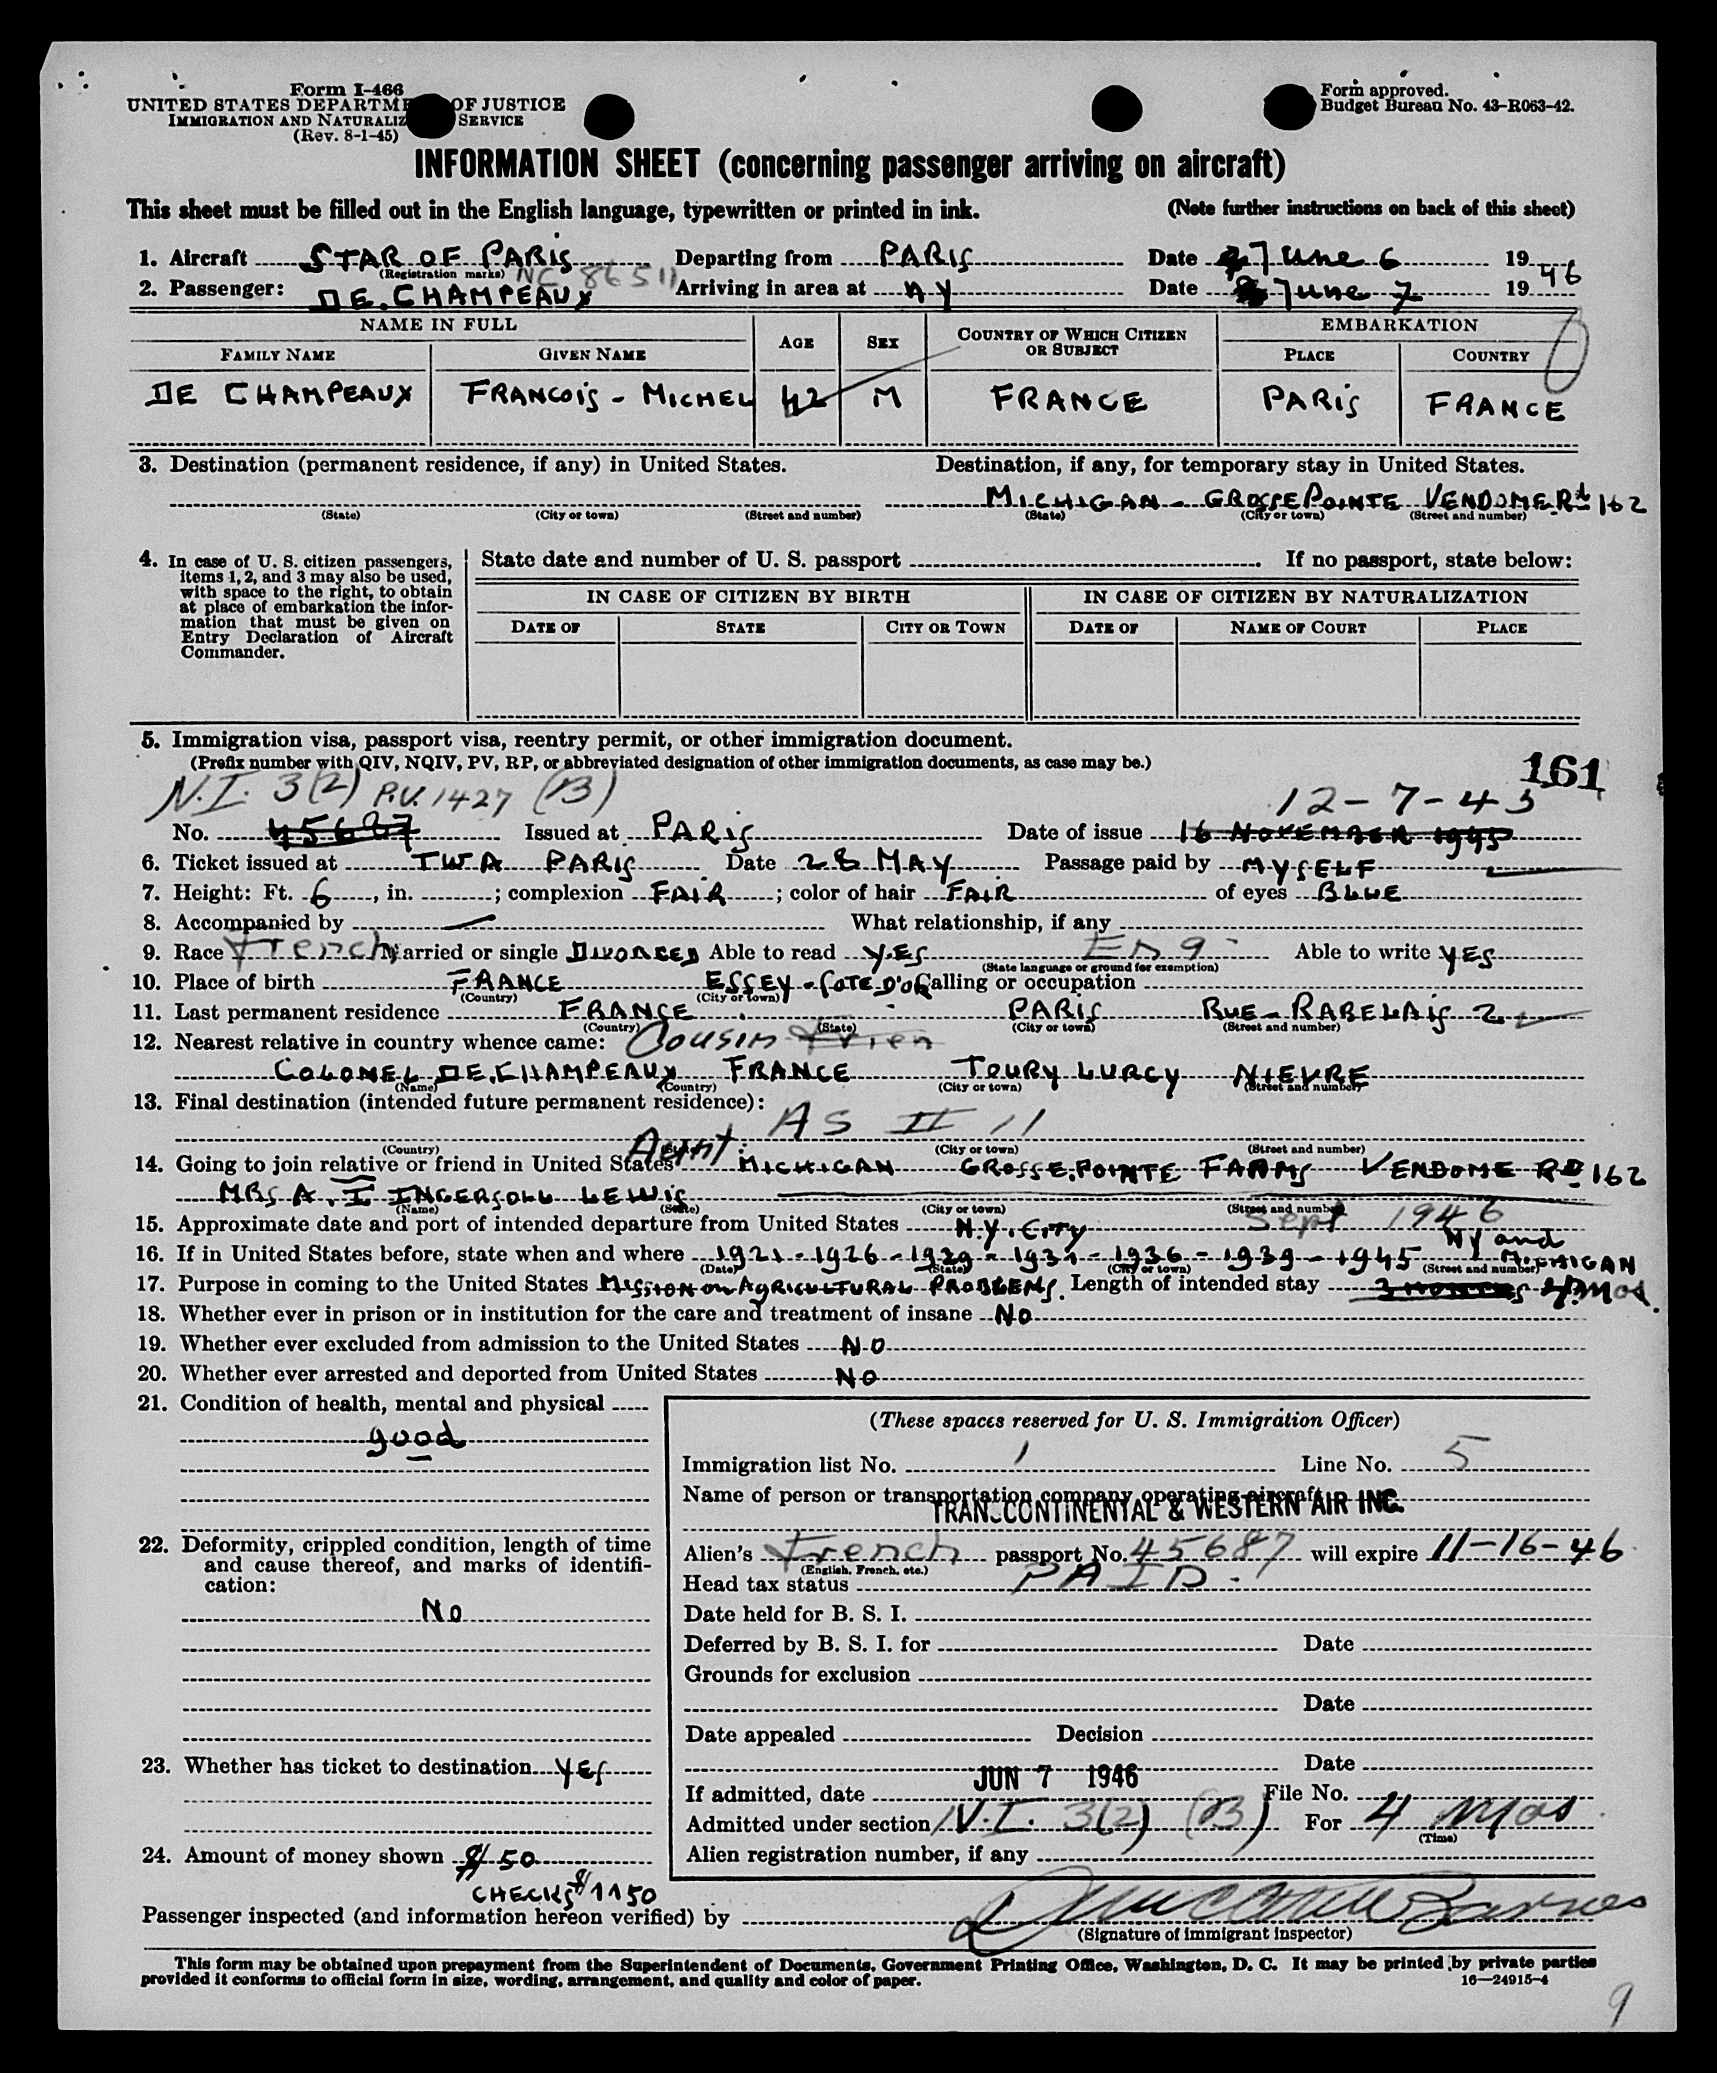 Form I-466
UNITED STATES DEPARTMENT OF JUSTICE
IMMIGRATION AND NATURALIZ SERVICE
(Rev. 8-1-45)
Form approved.
Budget Bureau No. 43-R063-42.
INFORMATION SHEET (concerning passenger arriving on aircraft)
This sheet must be filled out in the English language, typewritten or printed in ink. (Note further instructions on back of this sheet)
1. Aircraft STAR OF PARIS Departing from PARIS Date 7 June 6 19 46
(Registration marks) NC 86511
2. Passenger: DE CHAMPEAUX Arriving in area at NY Date June 7 19
NAME IN FULL AGE SEX COUNTRY OF WHICH CITIZEN OR SUBJECT EMBARKATION
FAMILY NAME GIVEN NAME PLACE COUNTRY
DE CHAMPEAUX FRANCOIS - MICHEL 42 M FRANCE PARIS FRANCE
3. Destination (permanent residence, if any) in United States. Destination, if any, for temporary stay in United States.
MICHIGAN - GROSSE POINTE VENDOME Rd 162
(State) (City or town) (Street and number) (State) (City or town) (Street and number)
4. In case of U. S. citizen passengers, items 1, 2, and 3 may also be used, with space to the right, to obtain at place of embarkation the information that must be given on Entry Declaration of Aircraft Commander.
State date and number of U. S. passport . If no passport, state below:
IN CASE OF CITIZEN BY BIRTH IN CASE OF CITIZEN BY NATURALIZATION
DATE OF STATE CITY OR TOWN DATE OF NAME OF COURT PLACE
5. Immigration visa, passport visa, reentry permit, or other immigration document.
(Prefix number with QIV, NQIV, PV, RP, or abbreviated designation of other immigration documents, as case may be.) 161
N.I. 3(2) P.V. 1427 (B) 12-7-45
No. 45687 Issued at PARIS Date of issue 16 NOVEMBER 1945
6. Ticket issued at TWA PARIS Date 28 MAY Passage paid by MYSELF
7. Height: Ft. 6, in. ; complexion FAIR ; color of hair FAIR of eyes BLUE
8. Accompanied by — What relationship, if any
9. Race French Married or single DIVORCED Able to read YES Eng Able to write YES
(State language or ground for exemption)
10. Place of birth FRANCE ESSEY - COTE D'OR Calling or occupation
(Country) (City or town)
11. Last permanent residence FRANCE PARIS RUE - RABELAIS 2
(Country) (State) (City or town) (Street and number)
12. Nearest relative in country whence came: Cousin Frien
COLONEL DE CHAMPEAUX FRANCE TOURY LURCY NIEVRE
(Name) (Country) (City or town) (Street and number)
13. Final destination (intended future permanent residence):
AS II 11
(Country) (State) (City or town) (Street and number)
14. Going to join relative or friend in United States Aunt: MICHIGAN GROSSE POINTE FARMS VENDOME RD 162
MRS A. I INGERSOLL LEWIS
(Name) (State) (City or town) (Street and number)
15. Approximate date and port of intended departure from United States N.Y. CITY Sept 1946
16. If in United States before, state when and where 1921 - 1926 - 1929 - 1931 - 1936 - 1939 - 1945 NY and MICHIGAN
(Date) (State) (City or town) (Street and number)
17. Purpose in coming to the United States MISSION on AGRICULTURAL PROBLEMS. Length of intended stay 3 MONTHS 4 mos.
18. Whether ever in prison or in institution for the care and treatment of insane NO
19. Whether ever excluded from admission to the United States NO
20. Whether ever arrested and deported from United States NO
21. Condition of health, mental and physical
good
22. Deformity, crippled condition, length of time and cause thereof, and marks of identification:
No
23. Whether has ticket to destination YES
24. Amount of money shown $ 50
CHECKS $ 1150
(These spaces reserved for U. S. Immigration Officer)
Immigration list No. 1 Line No. 5
Name of person or transportation company operating aircraft
TRANSCONTINENTAL & WESTERN AIR INC.
Alien's French passport No. 45687 will expire 11-16-46
(English, French, etc.)
Head tax status PAID.
Date held for B. S. I.
Deferred by B. S. I. for Date
Grounds for exclusion
Date
Date appealed Decision
Date
If admitted, date JUN 7 1946 File No.
Admitted under section N.I. 3(2) (B) For 4 Mos
(Time)
Alien registration number, if any
Passenger inspected (and information hereon verified) by
(Signature of immigrant inspector)
This form may be obtained upon prepayment from the Superintendent of Documents, Government Printing Office, Washington, D. C. It may be printed by private parties
provided it conforms to official form in size, wording, arrangement, and quality and color of paper. 16—24915-4
9